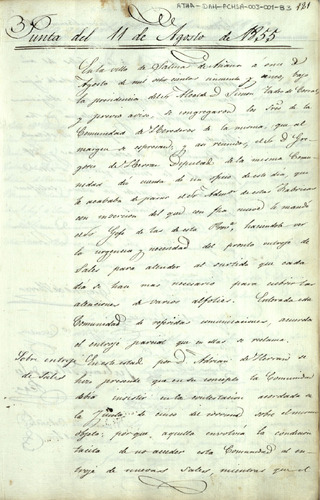 ATHA-DAH-FCHSA-003-001-B3 181
Junta del 11 de Agosto de 1855
En la villa de Salinas de Añana a once de
Agosto de mil ochocientos cincuenta y cinco, bajo
la presidencia del Sr. Alcalde D. Simon
y previo aviso, se congregaron los Sres. de la
Comunidad de Herederos de la misma, que al
margen se espresan, y asi reunidos, el Sr. D. Gre
gorio de Herran Diputado de la misma Comu
nidad dio cuenta de un oficio de este dia, que
le acababa de pasar el Sr. Admor. de estas Fabricas
con insercion del que con fha nueve le manda
el Sr. Gefe de las de esta Prov.ª, haciendole ver
la urgencia y necesidad del pronto entrojo de
Sales para atender al surtido que cada
dia se hace mas necesario para cubrir las
atenciones de varios alfolies. Enterada esta
Comunidad de referidas comunicaciones, acuerda
el entrojo parcial que en ellas se reclama.
Sobre entroje En este estado por D. Adrian de Herran se
de Sales hizo presente que en su concepto la Comunidad
debia insistir en la contestacion acordada en
la Junta de cinco del corriente sobre el mismo
objeto; porque aquella envolvia la condicion
tacita de no acceder esta Comunidad al en
troje de nuevas Sales, mientras que el